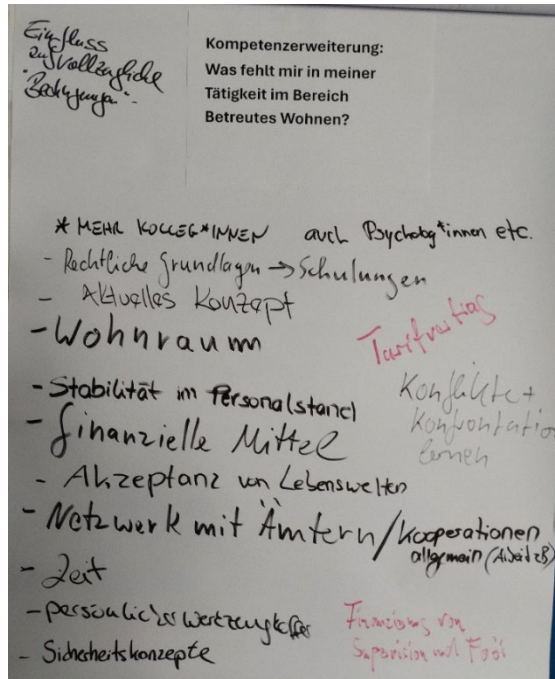 Einfluss
auf vollzugliche
"Bedingungen".
Kompetenzerweiterung:
Was fehlt mir in meiner
Tätigkeit im Bereich
Betreutes Wohnen?
* MEHR KOLLEG*INNEN auch Psycholog*innen etc.
- Rechtliche Grundlagen → Schulungen
- Aktuelles Konzept
- Wohnraum
Tarifvertrag
- Stabilität im Personalstand
Konflikte +
Konfrontation
lernen
- finanzielle Mittel
- Akzeptanz von Lebenswelten
- Netzwerk mit Ämtern/Kooperationen
allgemein (Arbeit zB)
- Zeit
- persönlicher Werkzeugkoffer
Finanzierung von
Supervision und FoBi
- Sicherheitskonzepte